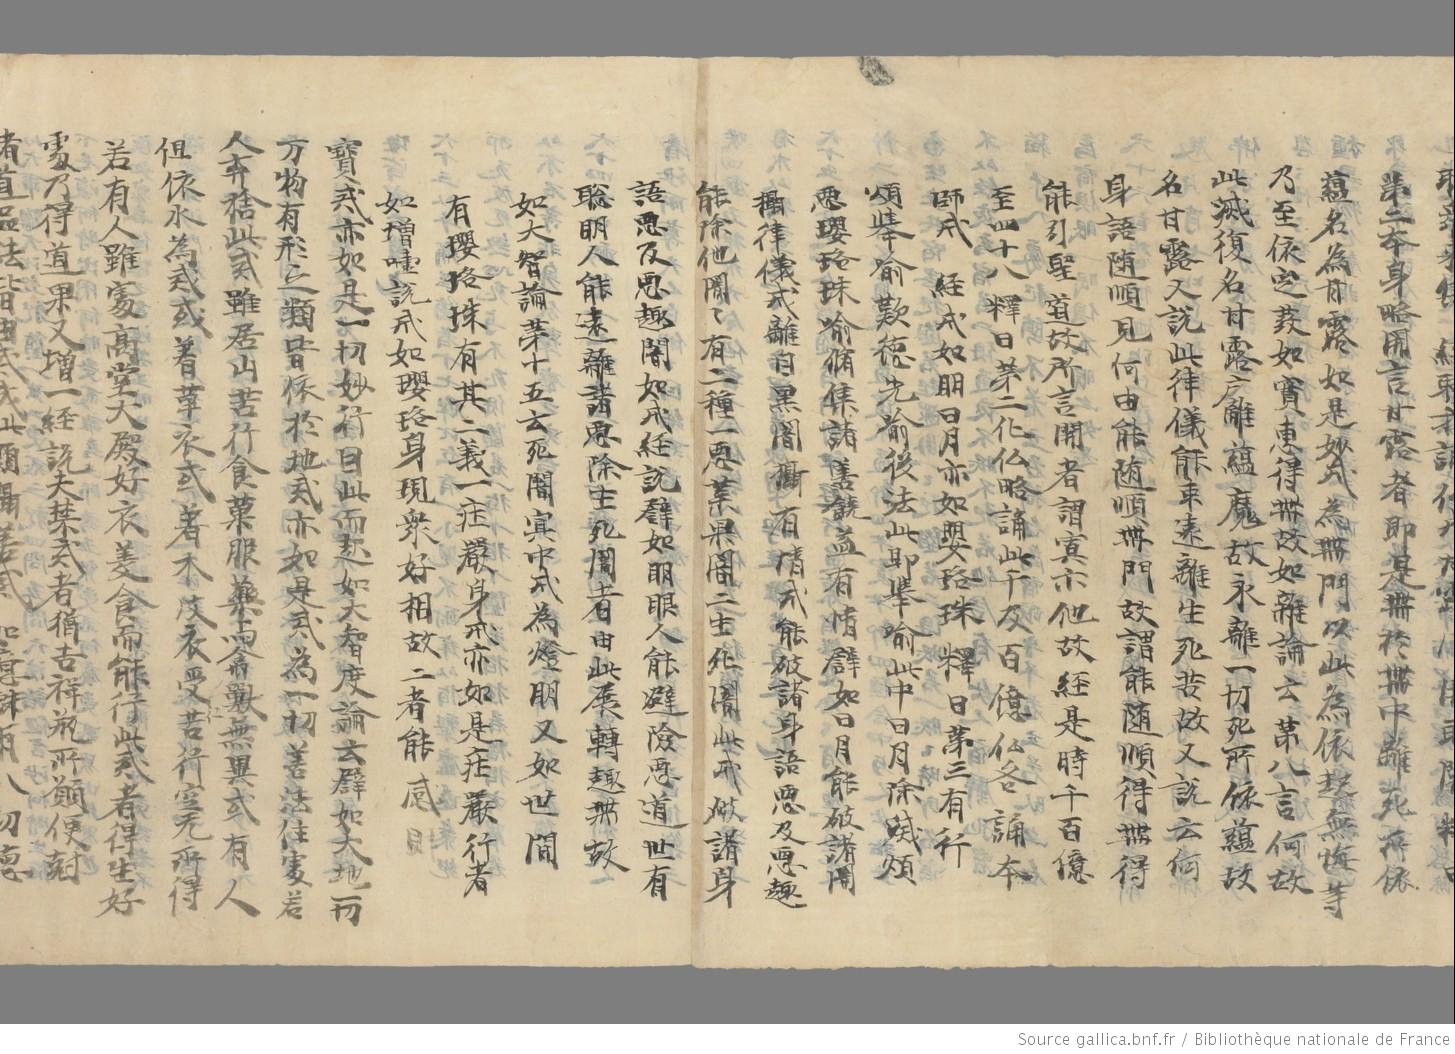 第二本身略開言甘露者即是無於無中離死所依
蘊名為甘露如是妙戒為無門以此為依起無悔等
乃至依定發如實惠得無故如離論云第八言何故
此滅復名甘露離蘊魔故永離一切死所依蘊故
名甘露又說此律儀能永遠離生死苦故又說云何
身語随順見何由能随順無門故謂能随順得無得
能引聖道故所言開者謂實示他故経是時千百億
至四十八釋曰第二化仏略誦此千及百億仏各誦本
師戒 経戒如明日月亦如嬰珞珠 釋曰第三有行
頌舉喻歎德先喻後法此即舉喻此中日月除滅煩
悪瓔珞珠喻脩集諸善饒益有情譬如日月能破諸闇
攝律儀戒離自黑闇攝有情戒能破諸身語悪及悪趣
能除他闇〻有二種一悪業果闇二生死闇此戒破諸身
語悪及悪趣闇如戒経說譬如明眼人能避險悪道世有
聡明人能遠離諸悪除生死闇者由此展轉趣無故
如大智論第十五云死闇冥中戒為燈明又如世間
有瓔珞珠有其二義一莊嚴身戒亦如是莊嚴行者
如增壹說戒如瓔珞身現衆好相故二者能感
寳戒亦如是一切妙行因此而起如大智度論云譬如大地一切
万物有形之類皆依於地戒亦如是戒為一切善法住處若
人弃捨此戒雖居山苦行食菓服藥与禽獸無異或有人
但依水為戒或著草衣或著木皮衣受苦行空无所得
若有人雖處高堂大殿好衣美食而能行此戒者得生好
處乃得道果又增一経說天禁戒者猶吉祥瓶所願便尅
者道品法皆由戒成此頌攝善戒